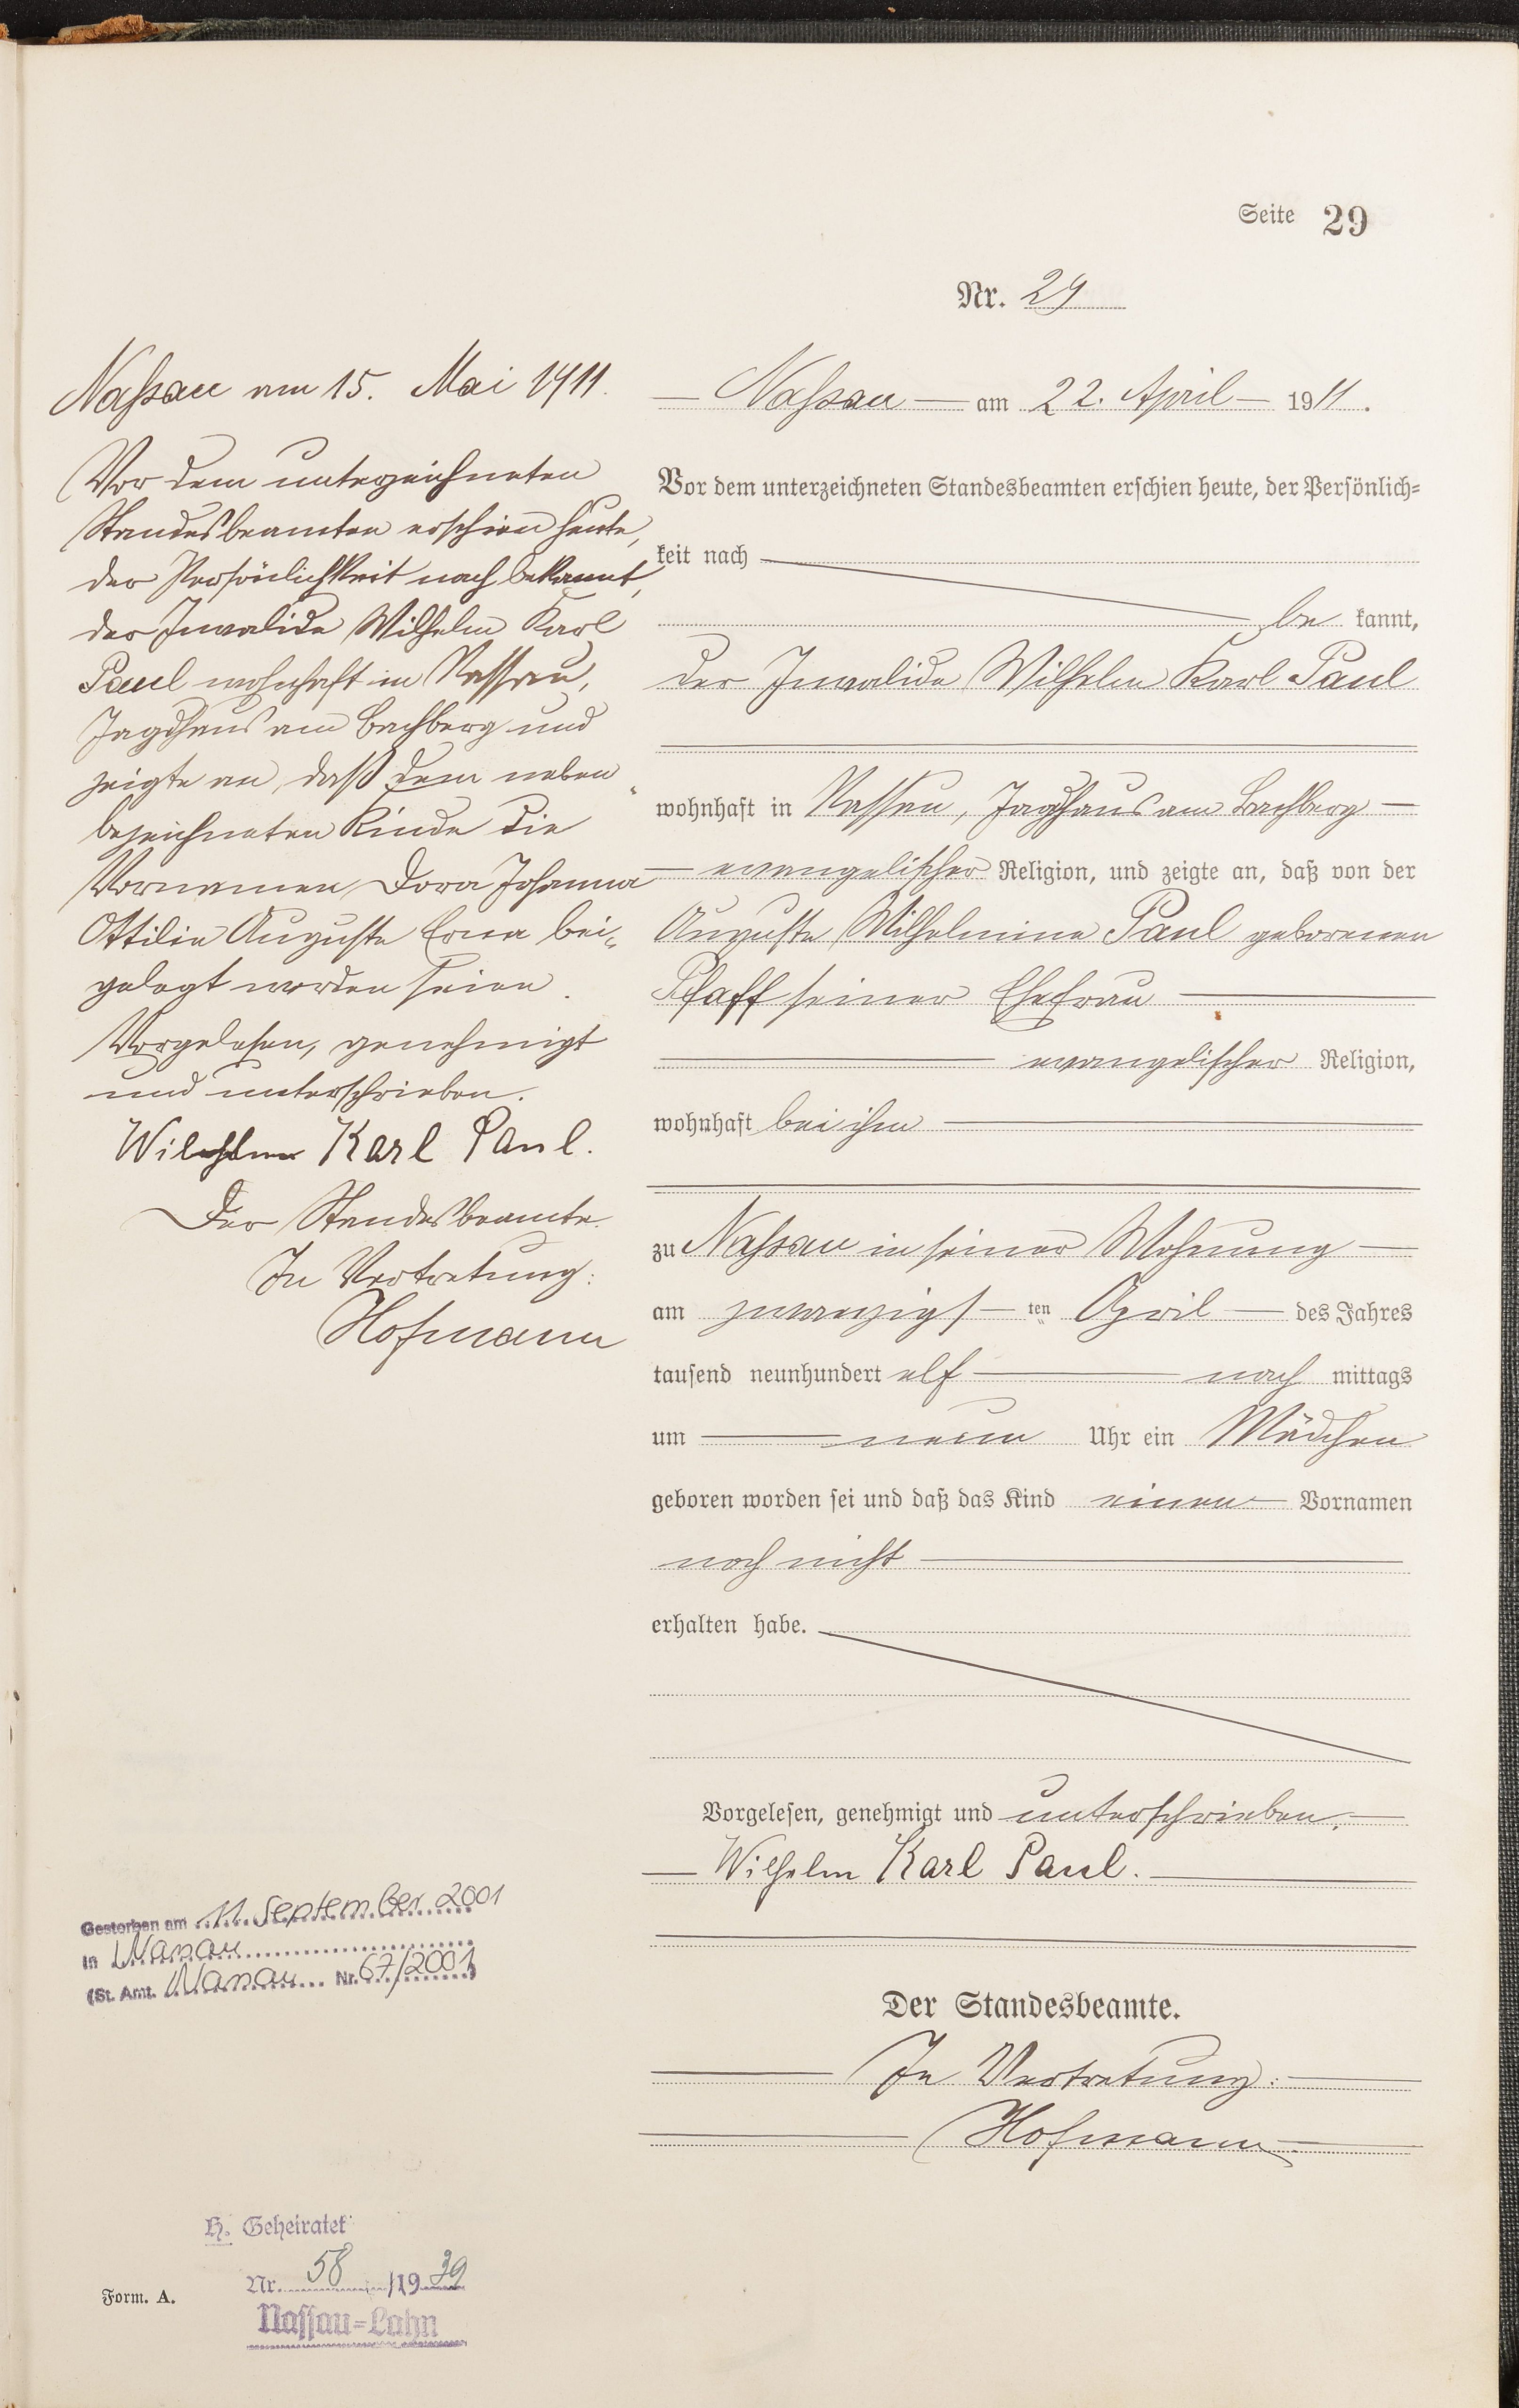 Seite 29
Nr. 29
Nassau am 15. Mai 1911.
Vor dem unterzeichneten
Standesbeamten erschien heute,
der Persönlichkeit nach bekannt,
der Invalide Wilhelm Karl
Paul wohnhaft in Nassau,
Jagdhaus am Bachberg und
zeigte an, daß dem neben-
bezeichneten Kinde die
Vornamen Dora Johanna
Ottilie Auguste Erna bei-
gelegt worden seien.
Vorgelesen, genehmigt
und unterschrieben.
Wilhelm Karl Paul.
Der Standesbeamte.
In Vertretung:
Hofmann
Nassau am 22. April 1911.
Vor dem unterzeichneten Standesbeamten erschien heute, der Persönlich-
keit nach
be kannt,
der Invalide Wilhelm Karl Paul
wohnhaft in Nassau, Jagdhaus am Bachberg
evangelischer Religion, und zeigte an, daß von der
Auguste Wilhelmine Paul geborenen
Pfaff seiner Ehefrau
evangelischer Religion,
wohnhaft bei ihm
zu Nassau in seiner Wohnung
am zwanzigs ten April des Jahres
tausend neunhundert elf nach mittags
um neun Uhr ein Mädchen
geboren worden sei und daß das Kind einen Vornamen
noch nicht
erhalten habe.
Vorgelesen, genehmigt und unterschrieben.
Wilhelm Karl Paul.
Der Standesbeamte.
In Vertretung:
Hofmann
Gestorben am 11. September 2001
in Nanau
(St. Amt. Nanau Nr. 67/2001)
H. Geheiratet
Nr. 58 /19 39
Nassau-Lahn
Form. A.